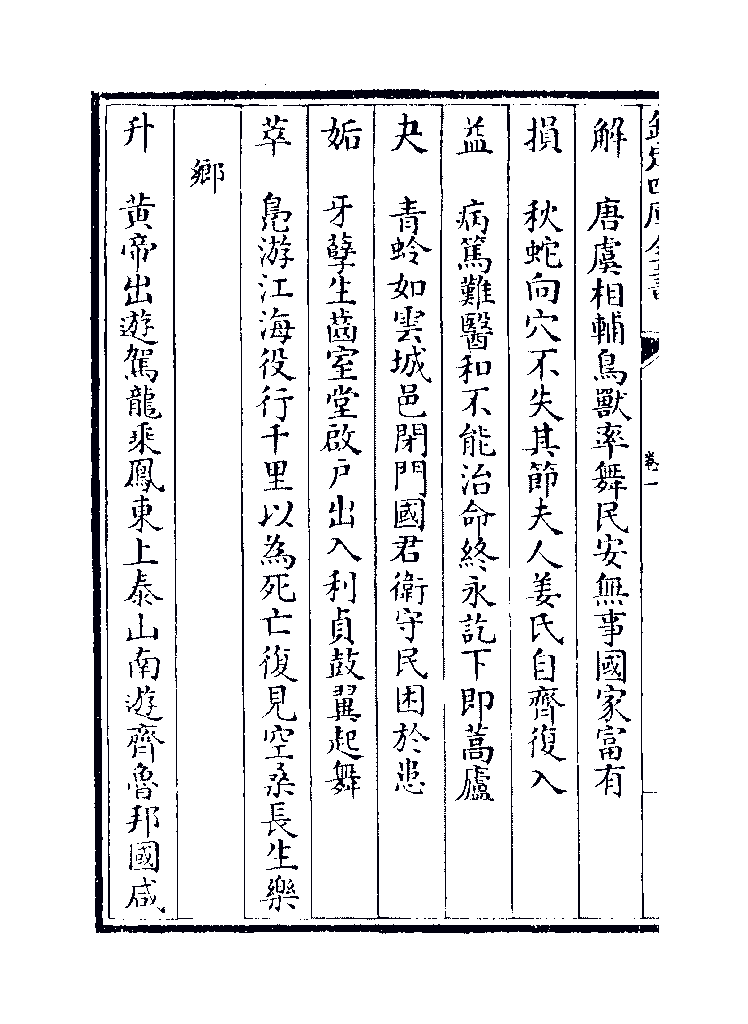 欽定四庫全書
卷一
解　唐虞相輔鳥獸率舞民安無事國家富有
損　秋蛇向穴不失其節夫人姜氏自齊復入
益　病篤難醫和不能治命終永訖下即蒿廬
夬　青蛉如雲城邑閉門國君衛守民困於患
姤　牙孽生齒室堂啟户出入利貞鼓翼起舞
萃　鳧游江海役行千里以為死亡復見空桑長生樂
鄉
升　黄帝出遊駕龍乘鳳東上泰山南遊齊魯邦國咸